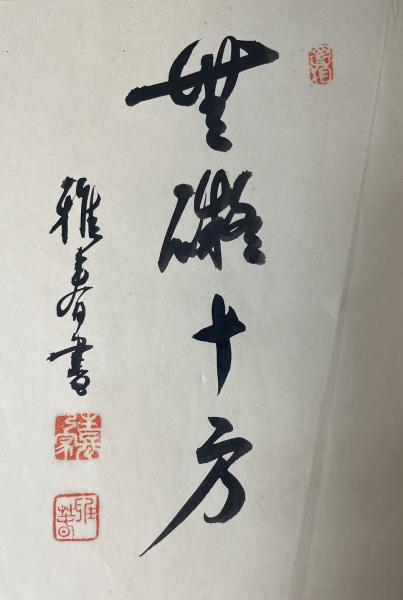 無礙十方
雅春書